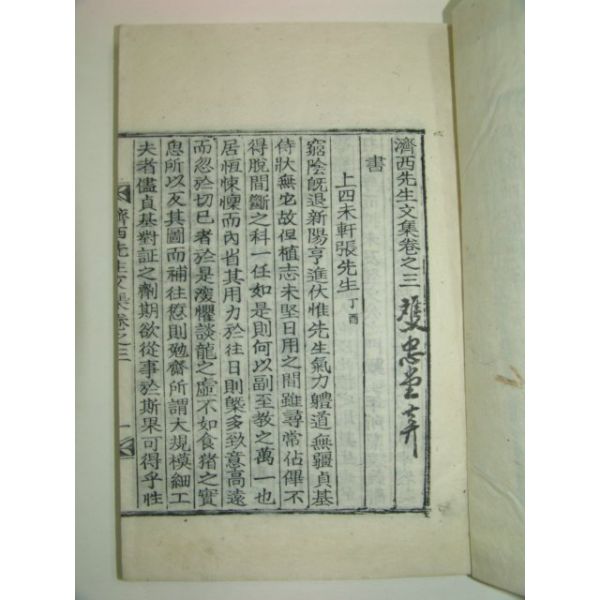 濟西先生文集卷之三
雙忠堂
書
上四未軒張先生 丁酉
窮陰旣退新陽亨進伏惟先生氣力軆道無疆貞基
侍狀無它故但植志未堅日用之間雖尋常佔俾不
得脫間斷之科一任如是則何以副至教之萬一也
居恆悚懍而內省其用力於往日則槩多致意高遠
而忽於切已者於是瀀懼談龍之虛不如食猪之實
息所以反其圖而補往愆則勉齋所謂大規模細工
夫者儘貞基對証之劑期欲從事於斯果可得乎性
濟西先生文集卷之三 一